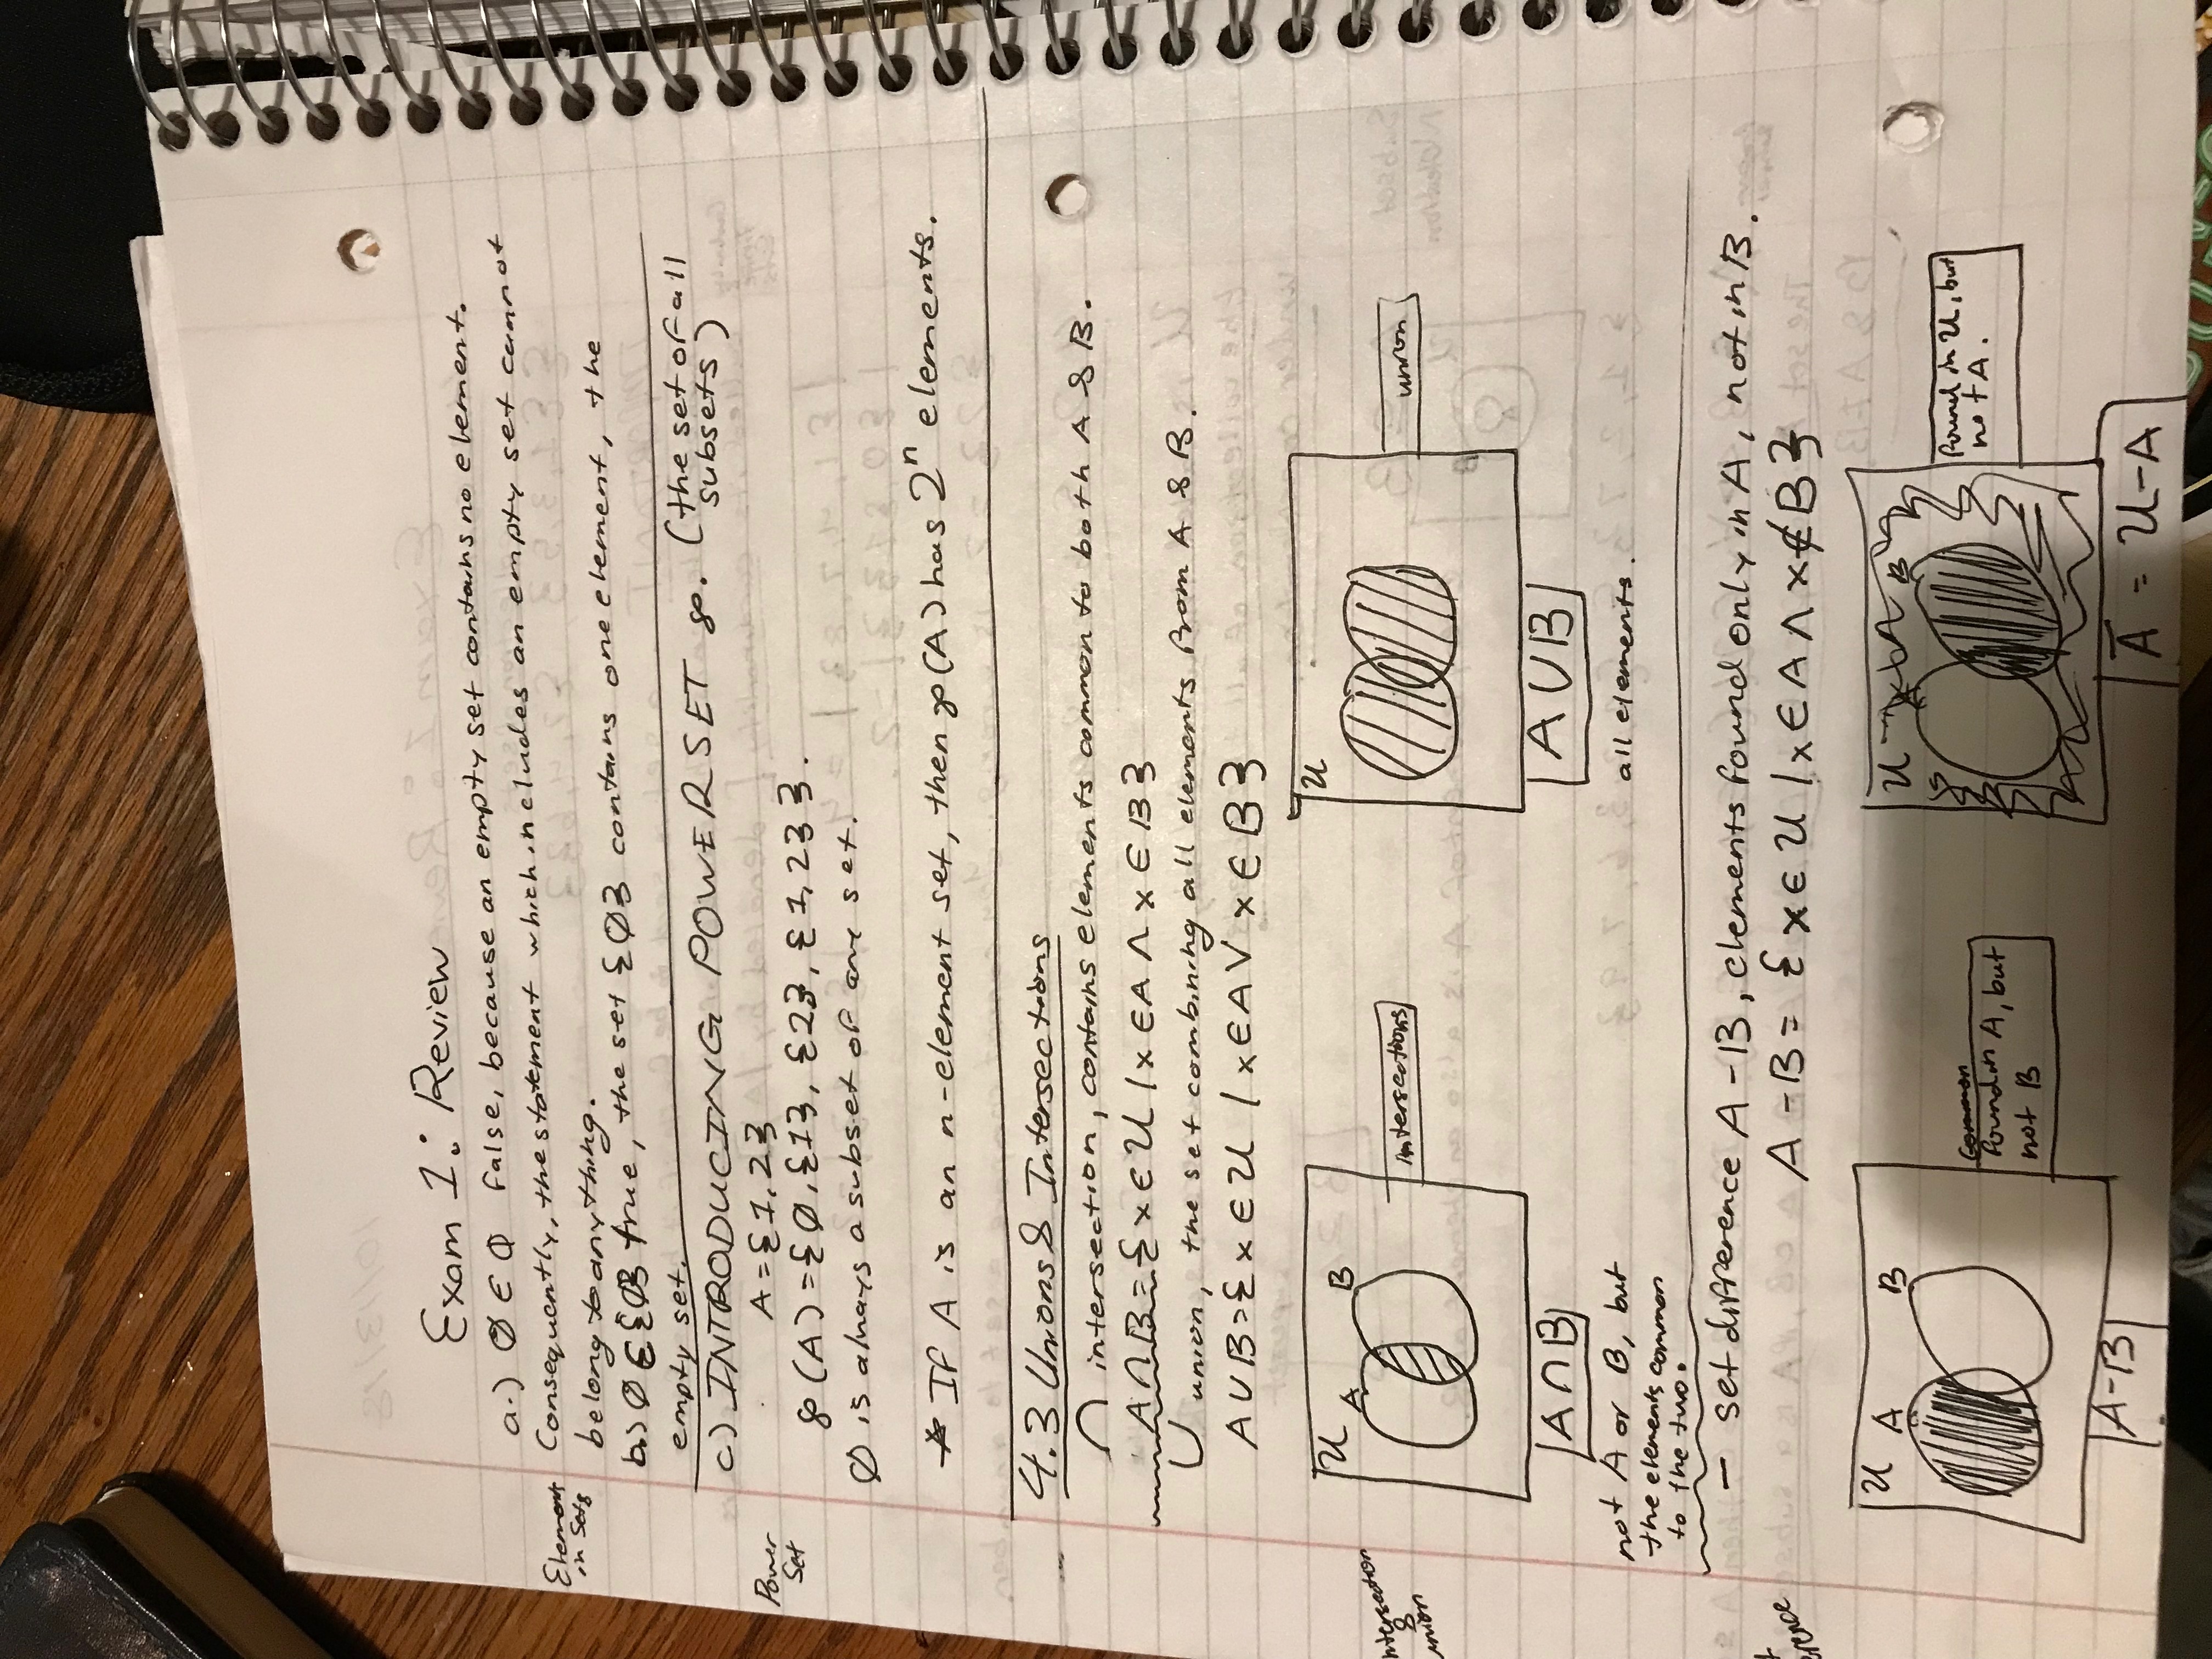 Exam 1: Review
a.) Ø ∈ Ø False, because an empty set contains no element.
Elements
in Sets
Consequently, the statement which includes an empty set cannot
belong to anything.
b.) Ø ∈ {Ø} true, the set {Ø} contains one element, the
empty set.
c) INTRODUCING POWER SET ℘. (the set of all
subsets)
A = {1,2}
Power
Set
℘(A) = {Ø, {1}, {2}, {1,2}}.
Ø is always a subset of any set.
* If A is an n-element set, then ℘(A) has 2ⁿ elements.
4.3 Unions & Intersections
∩ intersection, contains elements common to both A & B.
A∩B = {x ∈ U | x ∈ A ∧ x ∈ B}
∪ union, the set combining all elements from A & B.
A∪B = {x ∈ U | x ∈ A ∨ x ∈ B}
U A B
intersections
U
union
ntersection
&
union
A∩B
A∪B
not A or B, but
the elements common
to the two.
all elements.
− set difference A−B, elements found only in A, not in B.
erence
A−B = {x ∈ U | x ∈ A ∧ x ∉ B}
U A B
Common
found in A, but
not B
U A B
found in U, but
not A.
A−B
A̅ = U−A